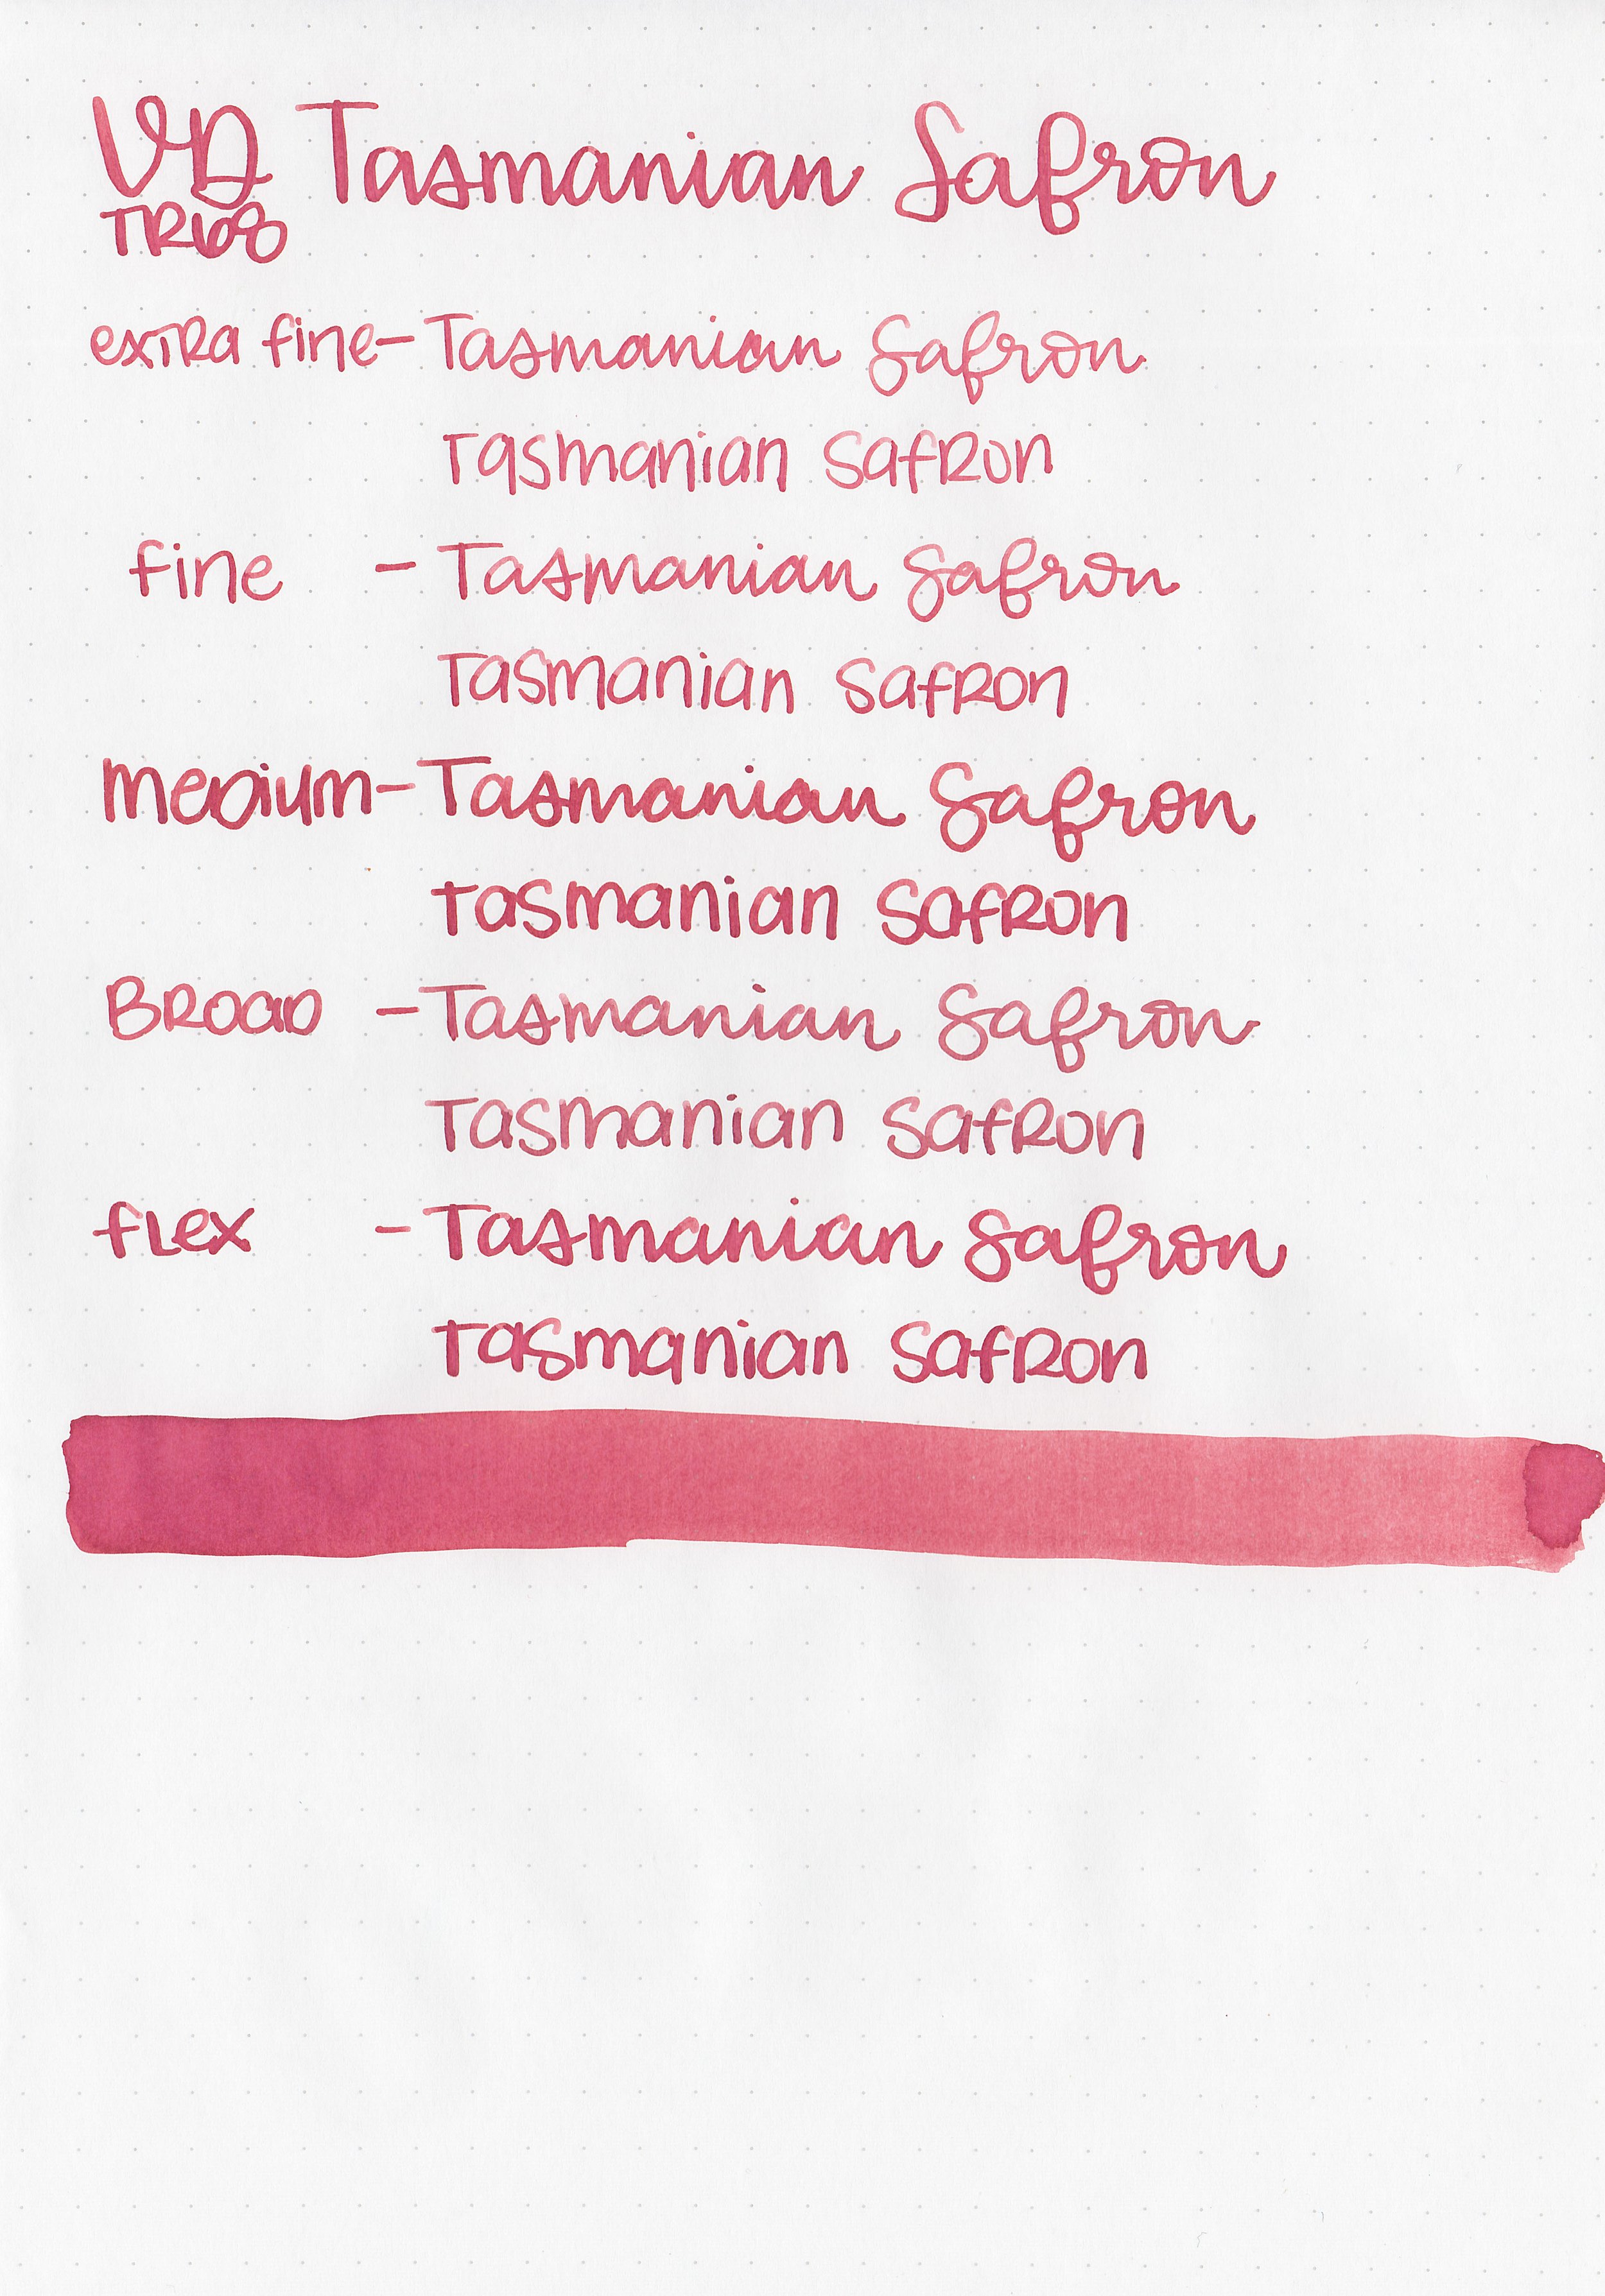 VD Tasmanian Safron
TR68
extra fine - Tasmanian Safron
Tasmanian Safron
fine - Tasmanian Safron
Tasmanian Safron
medium - Tasmanian Safron
Tasmanian Safron
Broad - Tasmanian Safron
Tasmanian Safron
flex - Tasmanian Safron
Tasmanian Safron